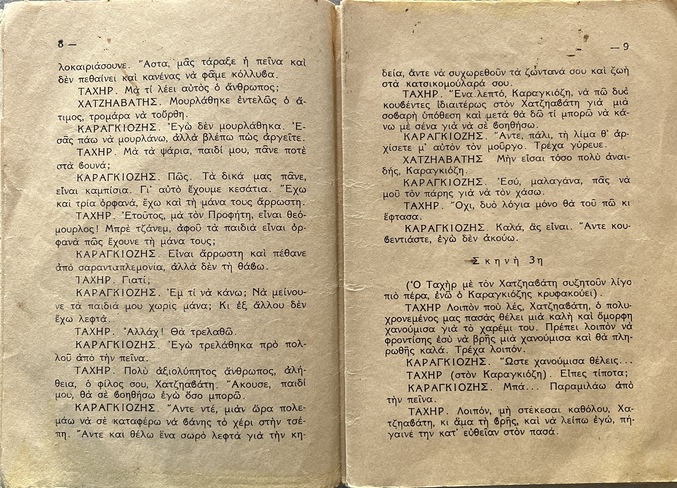 8 —
λοκαιριάσουνε. Ἄστα, μᾶς τάραξε ἡ πεῖνα καὶ
δὲν πεθαίνει καὶ κανένας νὰ φᾶμε κόλλυβα.
ΤΑΧΗΡ. Μὰ τί λέει αὐτὸς ὁ ἄνθρωπος;
ΧΑΤΖΗΑΒΑΤΗΣ. Μουρλάθηκε ἐντελῶς ὁ ἄ-
τιμος, τρομάρα νὰ τοὔρθη.
ΚΑΡΑΓΚΙΟΖΗΣ. Ἐγὼ δὲν μουρλάθηκα. Ἐ-
σᾶς πάω νὰ μουρλάνω, ἀλλὰ βλέπω πὼς ἀργεῖτε.
ΤΑΧΗΡ. Μὰ τὰ ψάρια, παιδί μου, πᾶνε ποτὲ
στὰ βουνά;
ΚΑΡΑΓΚΙΟΖΗΣ. Πῶς. Τὰ δικά μας πᾶνε,
εἶναι καμπίσια. Γι' αὐτὸ ἔχουμε κεσάτια. Ἔχω
καὶ τρία ὀρφανά, ἔχω καὶ τὴ μάνα τους ἄρρωστη.
ΤΑΧΗΡ. Ἐτοῦτος, μὰ τὸν Προφήτη, εἶναι θεό-
μουρλος! Μπρὲ τζάνεμ, ἀφοῦ τὰ παιδιὰ εἶναι ὀρ-
φανὰ πῶς ἔχουνε τὴ μάνα τους;
ΚΑΡΑΓΚΙΟΖΗΣ. Εἶναι ἄρρωστη καὶ πέθανε
ἀπὸ σαρανταπλεμονία, ἀλλὰ δὲν τὴ θάβω.
ΤΑΧΗΡ. Γιατί;
ΚΑΡΑΓΚΙΟΖΗΣ. Ἐμ τί νὰ κάνω; Νὰ μείνου-
νε τὰ παιδιά μου χωρὶς μάνα; Κι ἐξ ἄλλου δὲν
ἔχω λεφτά.
ΤΑΧΗΡ. Ἀλλάχ! Θὰ τρελαθῶ.
ΚΑΡΑΓΚΙΟΖΗΣ. Ἐγὼ τρελάθηκα πρὸ πολ-
λοῦ ἀπὸ τὴν πεῖνα.
ΤΑΧΗΡ. Πολὺ ἀξιολύπητος ἄνθρωπος, ἀλή-
θεια, ὁ φίλος σου, Χατζηαβάτη. Ἄκουσε, παιδί
μου, θὰ σὲ βοηθήσω ἐγὼ ὅσο μπορῶ.
ΚΑΡΑΓΚΙΟΖΗΣ. Ἄντε ντέ, μιὰν ὥρα πολε-
μάω νὰ σὲ καταφέρω νὰ βάνης τὸ χέρι στὴν τσέ-
πη. Ἄντε καὶ θέλω ἕνα σωρὸ λεφτὰ γιὰ τὴν κη-
— 9
δεία, ἄντε νὰ συχωρεθοῦν τὰ ζωντανά σου καὶ ζωὴ
στὰ κατσικομούλαρά σου.
ΤΑΧΗΡ. Ἕνα λεπτό, Καραγκιόζη, νὰ πῶ δυὸ
κουβέντες ἰδιαιτέρως στὸν Χατζηαβάτη γιὰ μιὰ
σοβαρὴ ὑπόθεση καὶ μετὰ θὰ δῶ τί μπορῶ νὰ κά-
νω μὲ σένα γιὰ νὰ σὲ βοηθήσω.
ΚΑΡΑΓΚΙΟΖΗΣ. Ἄντε, πάλι, τὴ λίμα θ' ἀρ-
χίσετε μ' αὐτὸν τὸν μοῦργο. Τρέχα γύρευε.
ΧΑΤΖΗΑΒΑΤΗΣ Μὴν εἶσαι τόσο πολὺ ἀναι-
δής, Καραγκιόζη.
ΚΑΡΑΓΚΙΟΖΗΣ. Ἐσύ, μαλαγάνα, πᾶς νὰ
μοῦ τὸν πάρης γιὰ νὰ τὸν χάσω.
ΤΑΧΗΡ. Ὄχι, δυὸ λόγια μόνο θὰ τοῦ πῶ κι
ἔφτασα.
ΚΑΡΑΓΚΙΟΖΗΣ. Καλά, ἂς εἶναι. Ἄντε κου-
βεντιάστε, ἐγὼ δὲν ἀκούω.
Σκηνὴ 3η
(Ὁ Ταχὴρ μὲ τὸν Χατζηαβάτη συζητοῦν λίγο
πιὸ πέρα, ἐνῶ ὁ Καραγκιόζης κρυφακούει).
ΤΑΧΗΡ Λοιπὸν ποὺ λές, Χατζηαβάτη, ὁ πολυ-
χρονεμένος μας πασὰς θέλει μιὰ καλὴ καὶ ὄμορφη
χανούμισα γιὰ τὸ χαρέμι του. Πρέπει λοιπὸν νὰ
φροντίσης ἐσὺ νὰ βρῆς μιὰ χανούμισα καὶ θὰ πλη-
ρωθῆς καλά. Τρέχα λοιπόν.
ΚΑΡΑΓΚΙΟΖΗΣ. Ὥστε χανούμισα θέλεις...
ΤΑΧΗΡ (στὸν Καραγκιόζη). Εἶπες τίποτα;
ΚΑΡΑΓΚΙΟΖΗΣ. Μπά... Παραμιλάω ἀπὸ
τὴν πεῖνα.
ΤΑΧΗΡ. Λοιπόν, μὴ στέκεσαι καθόλου, Χα-
τζηαβάτη, κι ἅμα τὴ βρῆς, καὶ νὰ λείπω ἐγώ, πή-
γαινε την κατ' εὐθεῖαν στὸν πασά.